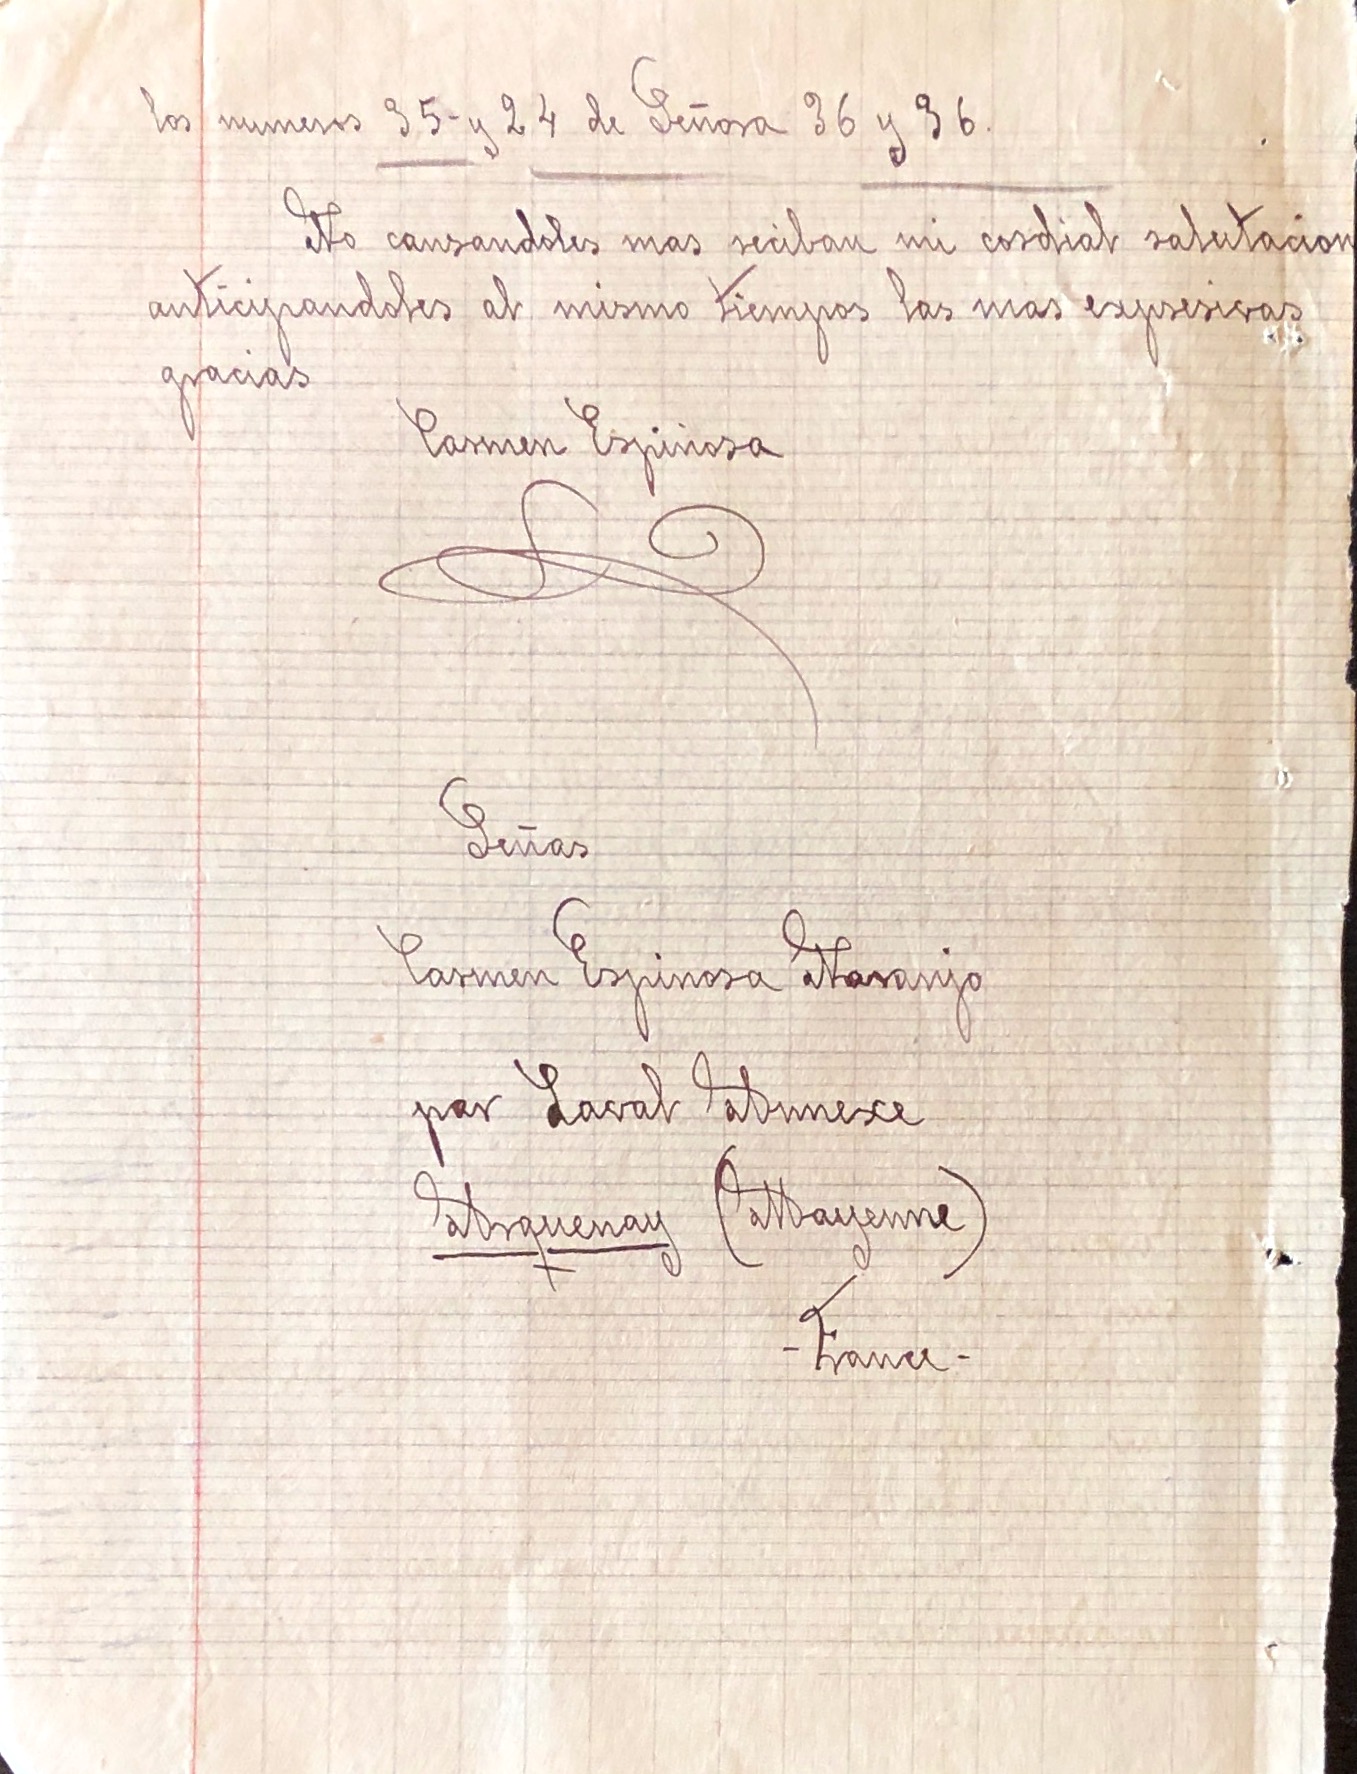 los numeros 35- y 24 de Señora 36 y 36.
No cansandoles mas reciban mi cordial salutacion
anticipandoles al mismo tiempos las mas expresivas
gracias
Carmen Espinosa
Señas
Carmen Espinosa Naranjo
par Laval Annexe
Arquenay (Mayenne)
- France -